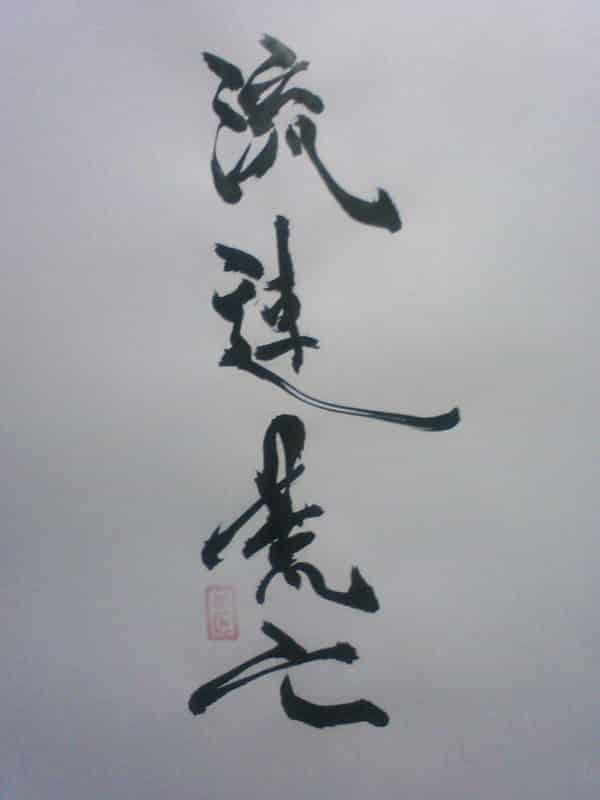 流連荒亡